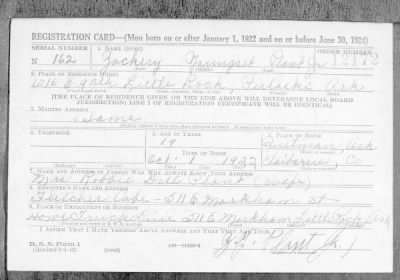 REGISTRATION CARD—(Men born on or after January 1, 1922 and on or before June 30, 1924)
SERIAL NUMBER 1. NAME (Print) ORDER NUMBER
N 162 Zackery Plant Jr.
2. PLACE OF RESIDENCE (Print)
1016 E 9th Little Rock, Pulaski Ark
[THE PLACE OF RESIDENCE GIVEN ON THE LINE ABOVE WILL DETERMINE LOCAL BOARD
JURISDICTION; LINE 2 OF REGISTRATION CERTIFICATE WILL BE IDENTICAL]
3. MAILING ADDRESS
Same
4. TELEPHONE 5. AGE IN YEARS 6. PLACE OF BIRTH
19 Quitman, Ark
DATE OF BIRTH
Oct 1 1922 Cleburne, C
7. NAME AND ADDRESS OF PERSON WHO WILL ALWAYS KNOW YOUR ADDRESS
Mrs Robbie Dell Plant (wife)
8. EMPLOYER'S NAME AND ADDRESS
511 E Markham St
9. PLACE OF EMPLOYMENT OR BUSINESS
Truck Line 511 E Markham Little Rock Ark
I AFFIRM THAT I HAVE VERIFIED ABOVE ANSWERS AND THAT THEY ARE TRUE.
D. S. S. Form 1
Plant Jr.